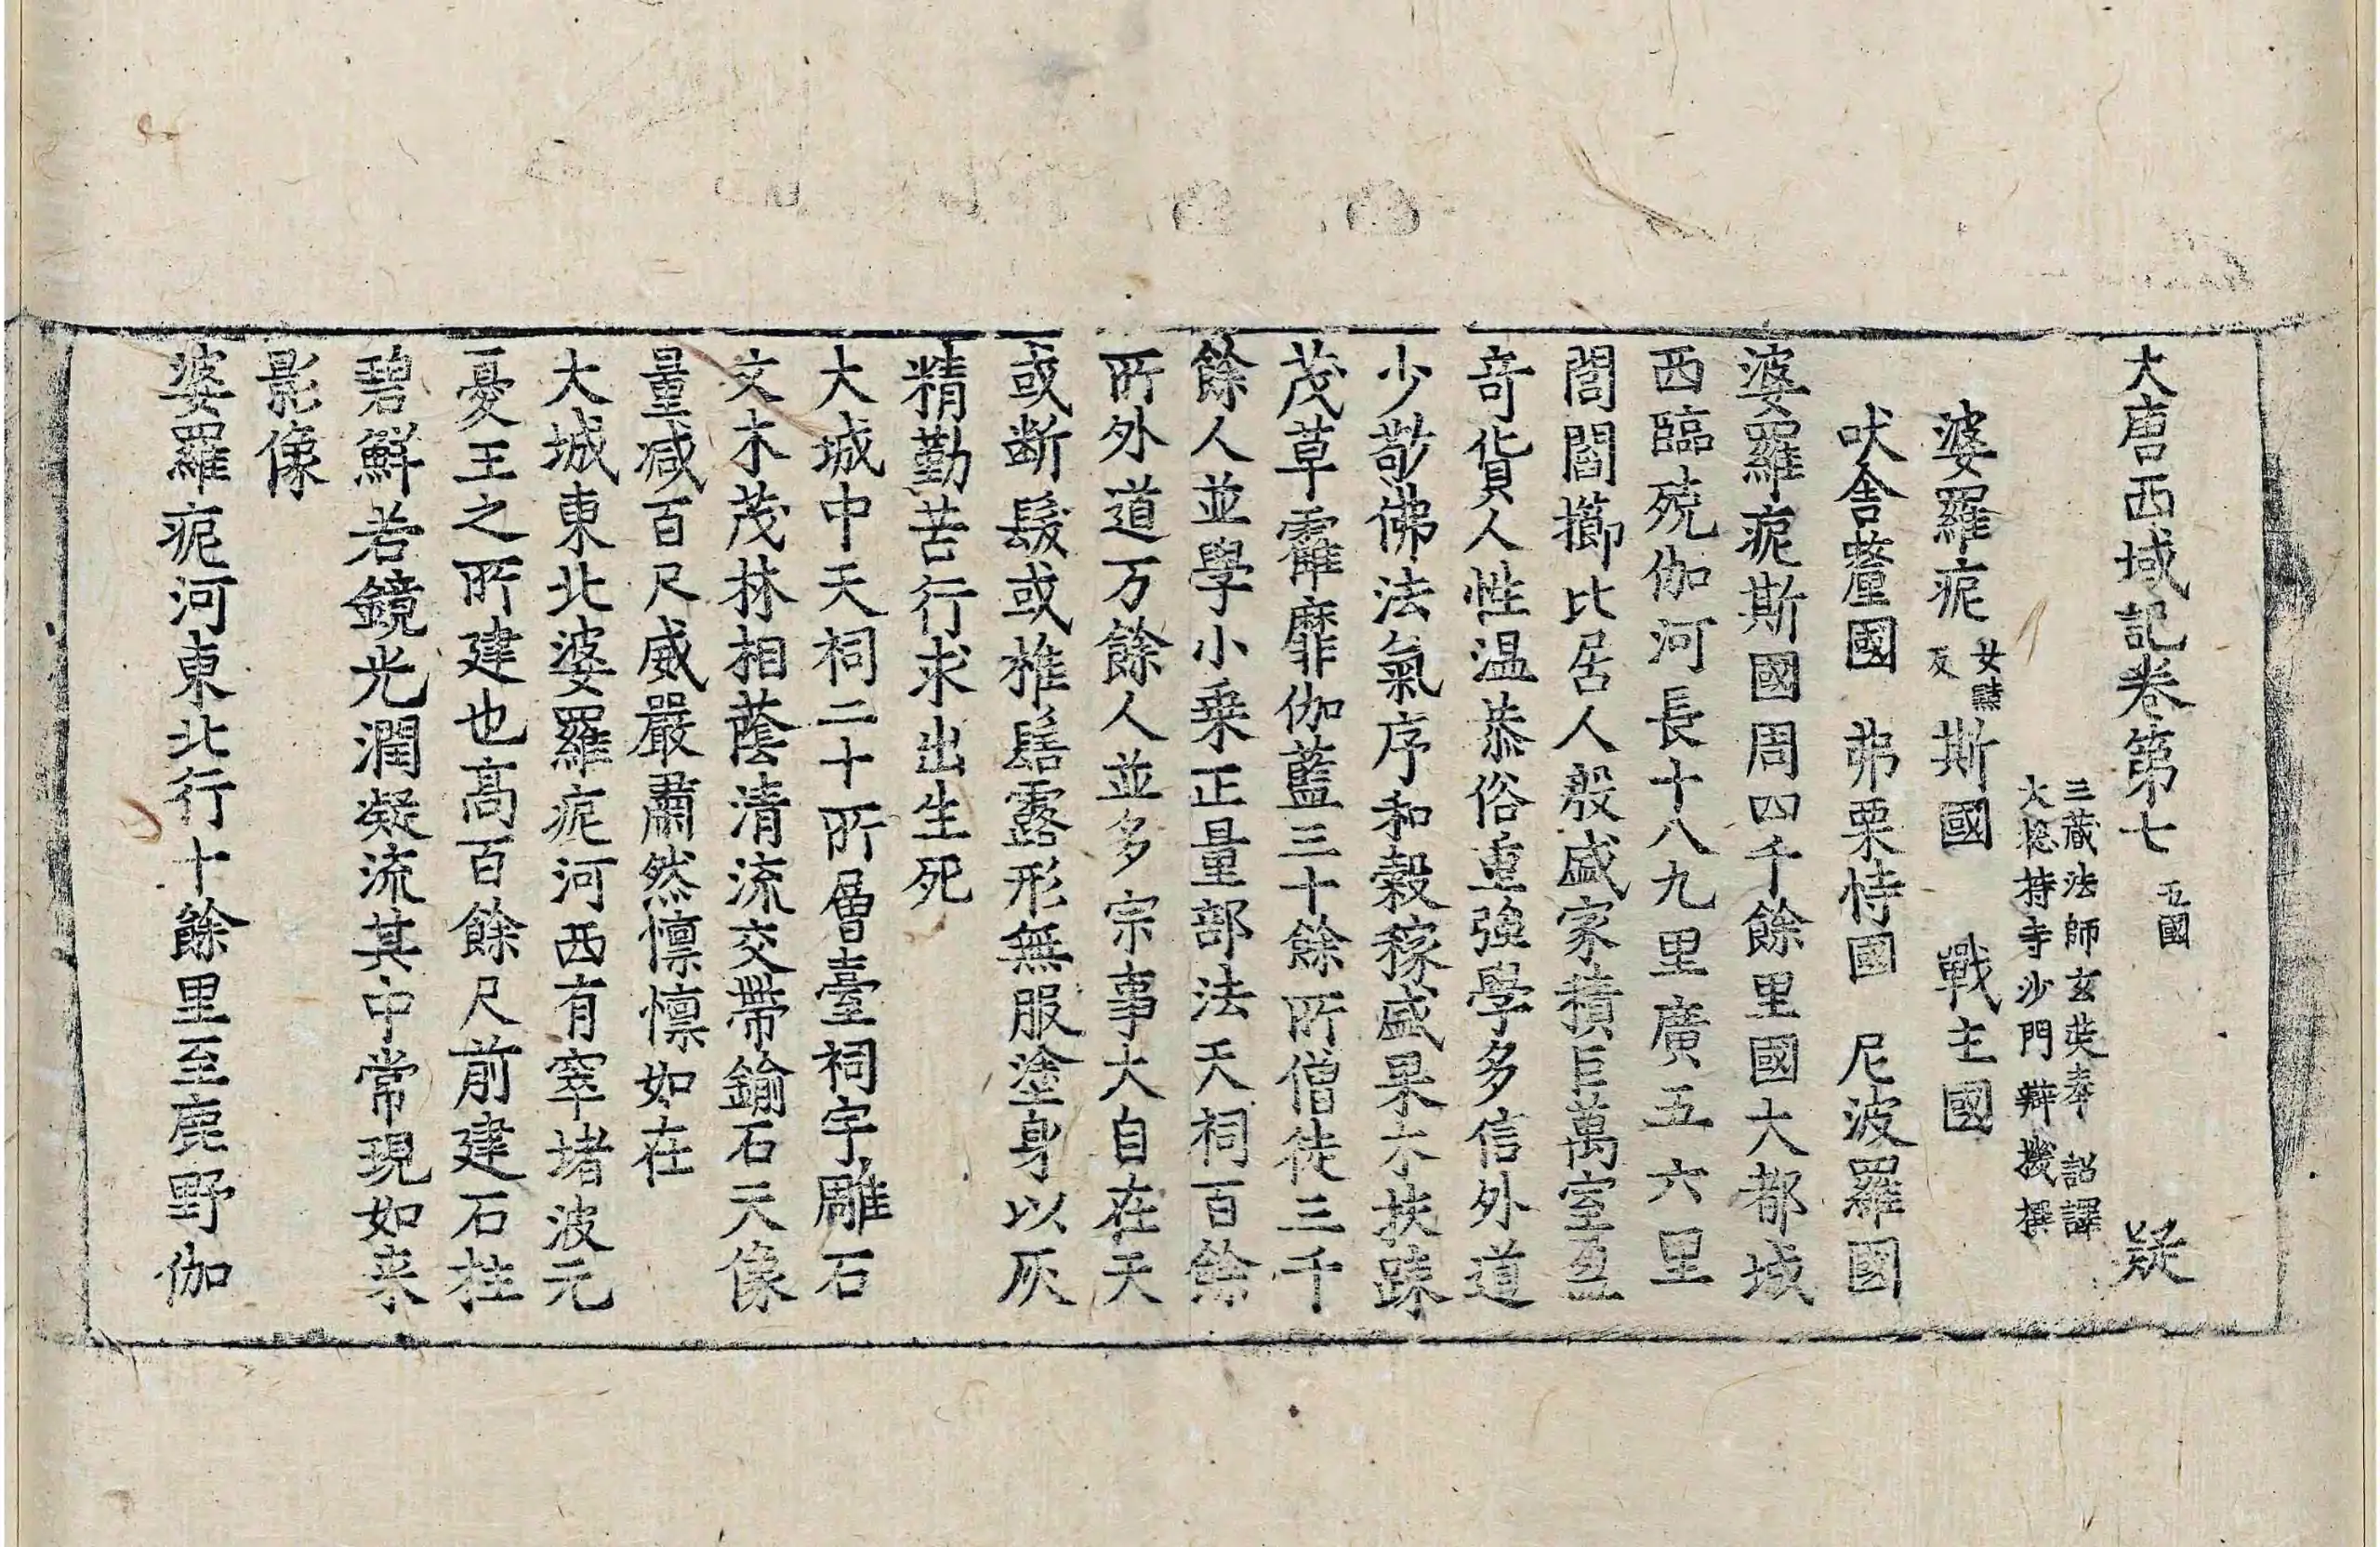 大唐西域記卷第七 五國 疑
三藏法師玄奘奉 詔譯
大揔持寺沙門辯機撰
婆羅痆女黠反斯國 戰主國
吠舍釐國 弗栗恃國 尼波羅國
婆羅痆斯國周四千餘里國大都城
西臨殑伽河長十八九里廣五六里
閭閻擳比居人殷盛家積巨萬室盈
奇貨人性温恭俗重強學多信外道
少敬佛法氣序和穀稼盛果木扶踈
茂草霍靡伽藍三十餘所僧徒三千
餘人並學小乗正量部法天祠百餘
所外道万餘人並多宗事大自在天
或断髮或椎髻露形無服塗身以灰
精勤苦行求出生死
大城中天祠二十所層臺祠宇雕石
文木茂林相蔭清流交帶鍮石天像
量减百尺威嚴肅然懍懍如在
大城東北婆羅痆河西有窣堵波元
憂王之所建也高百餘尺前建石柱
碧鮮若鏡光潤凝流其中常現如来
影像
婆羅痆河東北行十餘里至鹿野伽